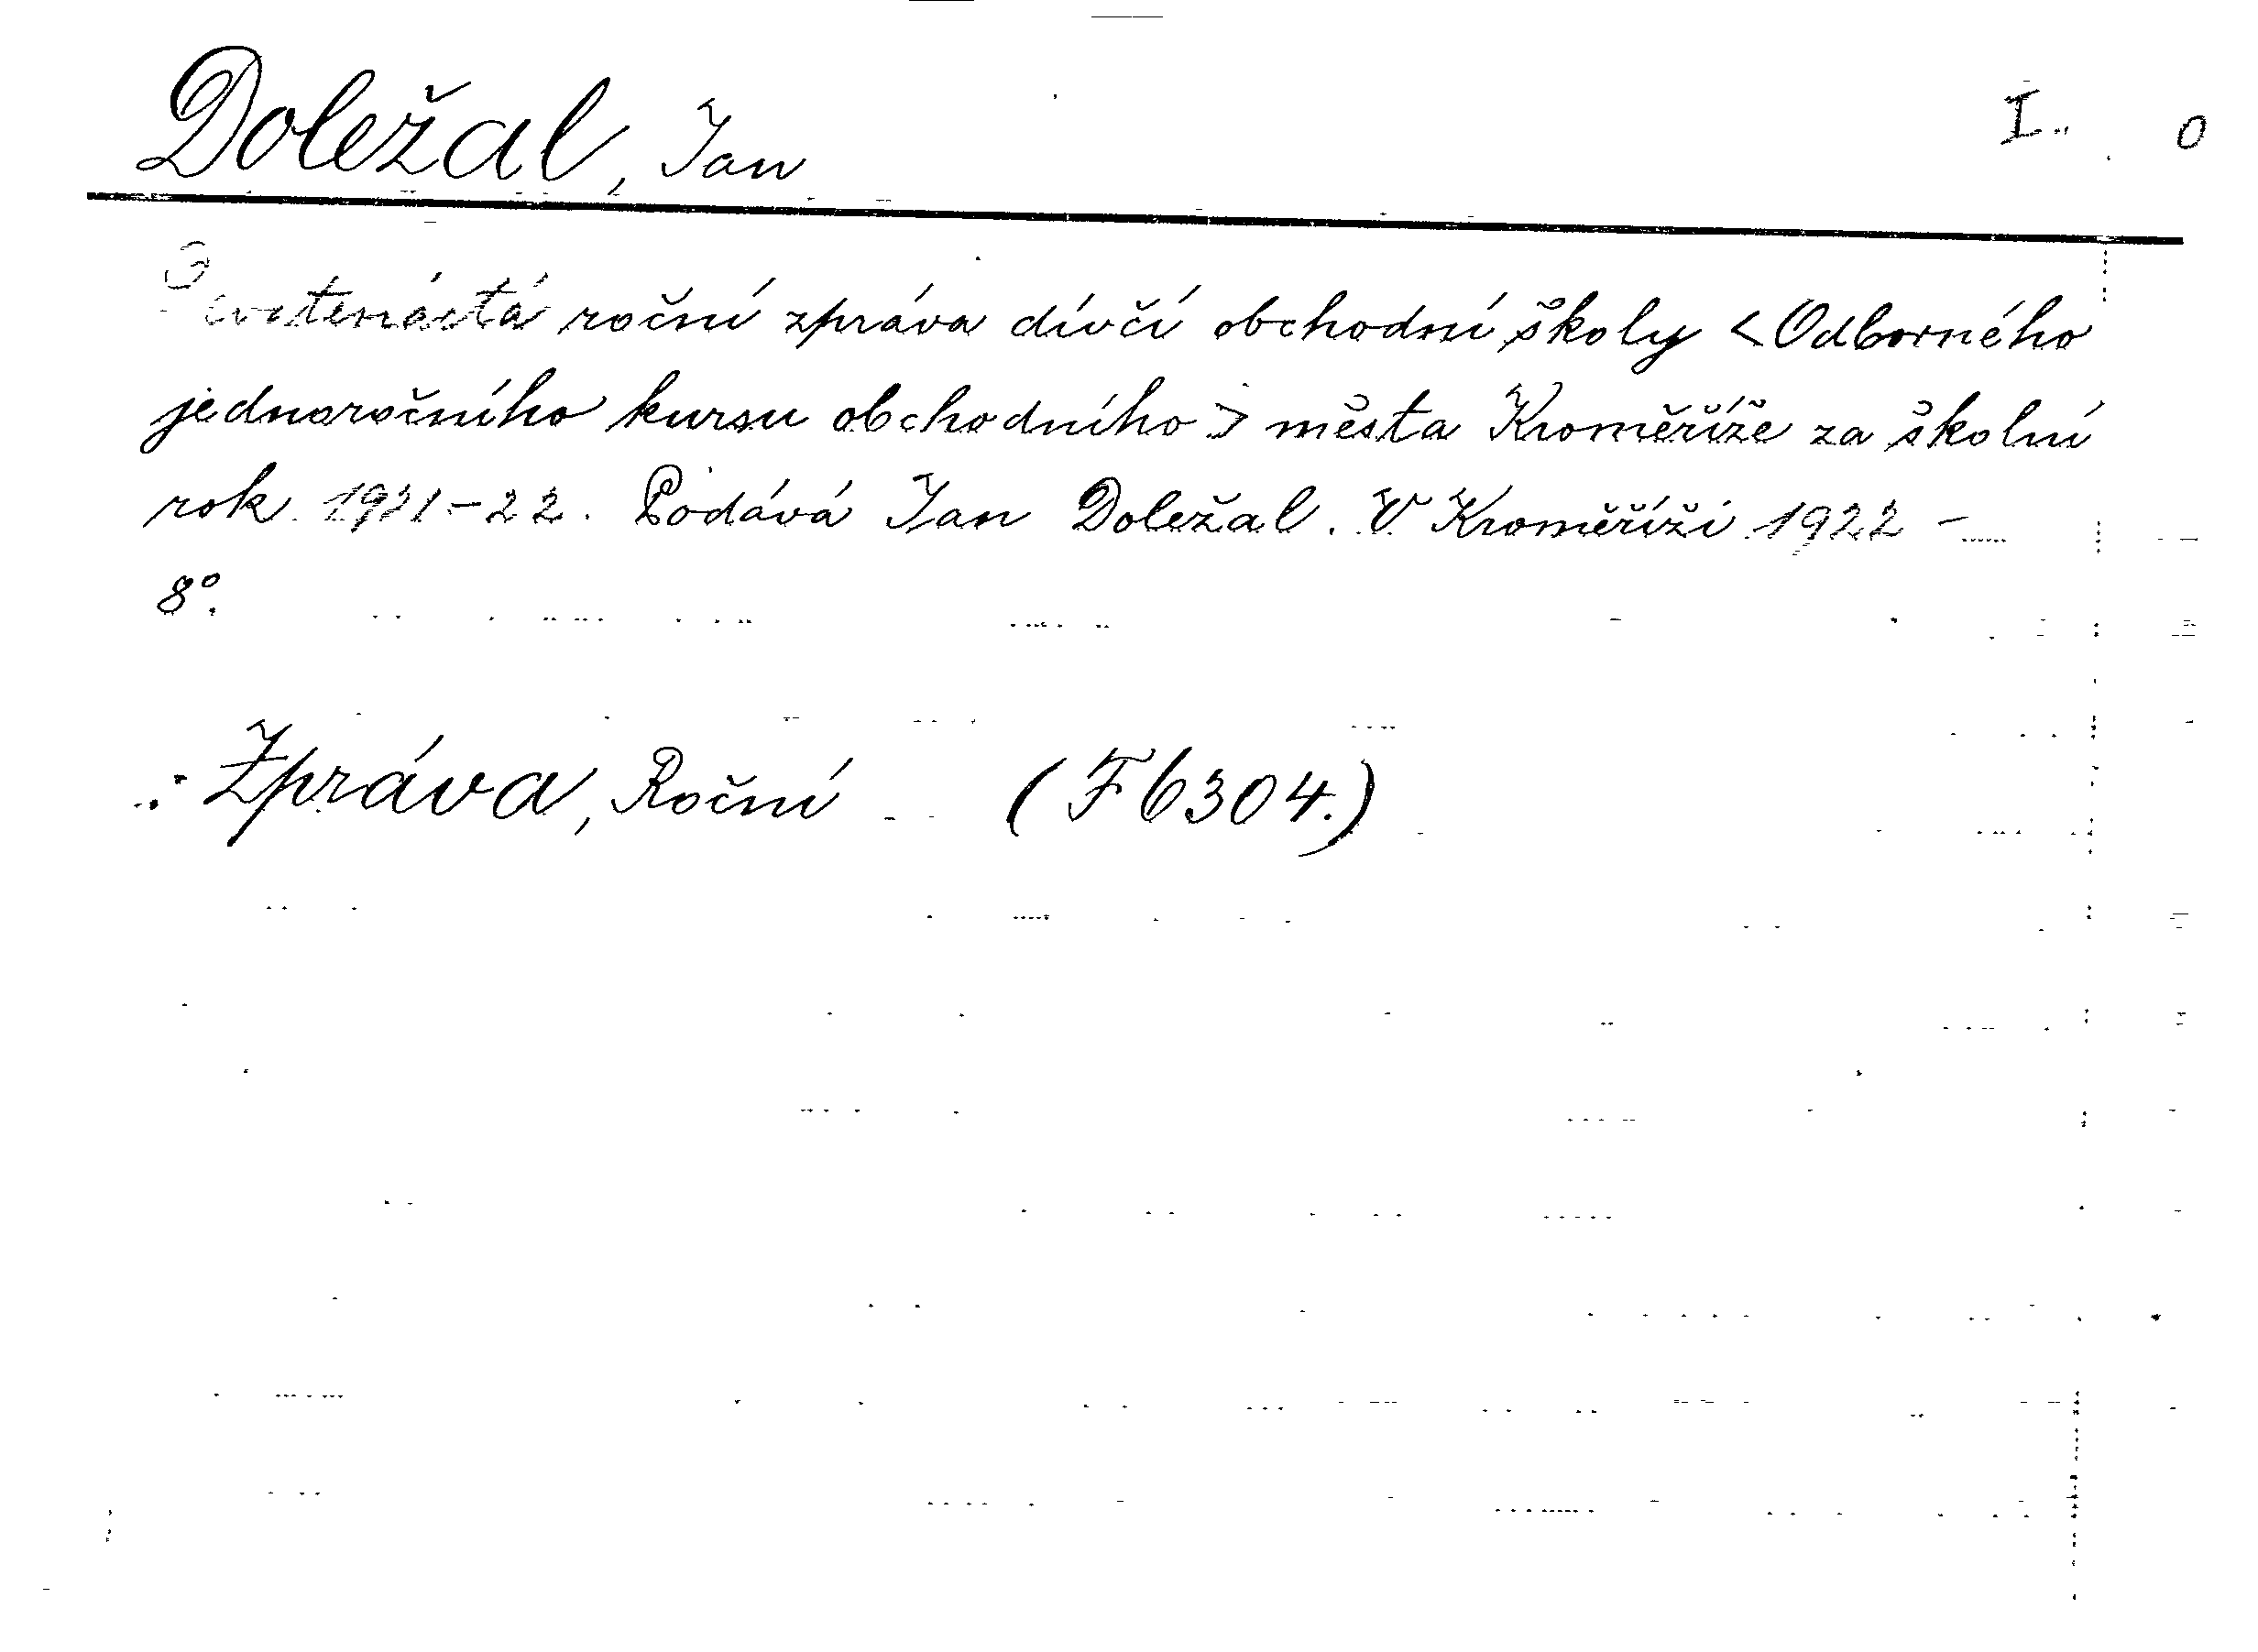 Doležal, Jan I. 0
roční zpráva dívčí obchodní školy <Odborného
jednoročního kursu obchodního> města Kroměříže za školní
rok 1921-22. Podává Jan Doležal. V Kroměříži 1922 -
8°.
: Zpráva, Roční (F6304.)